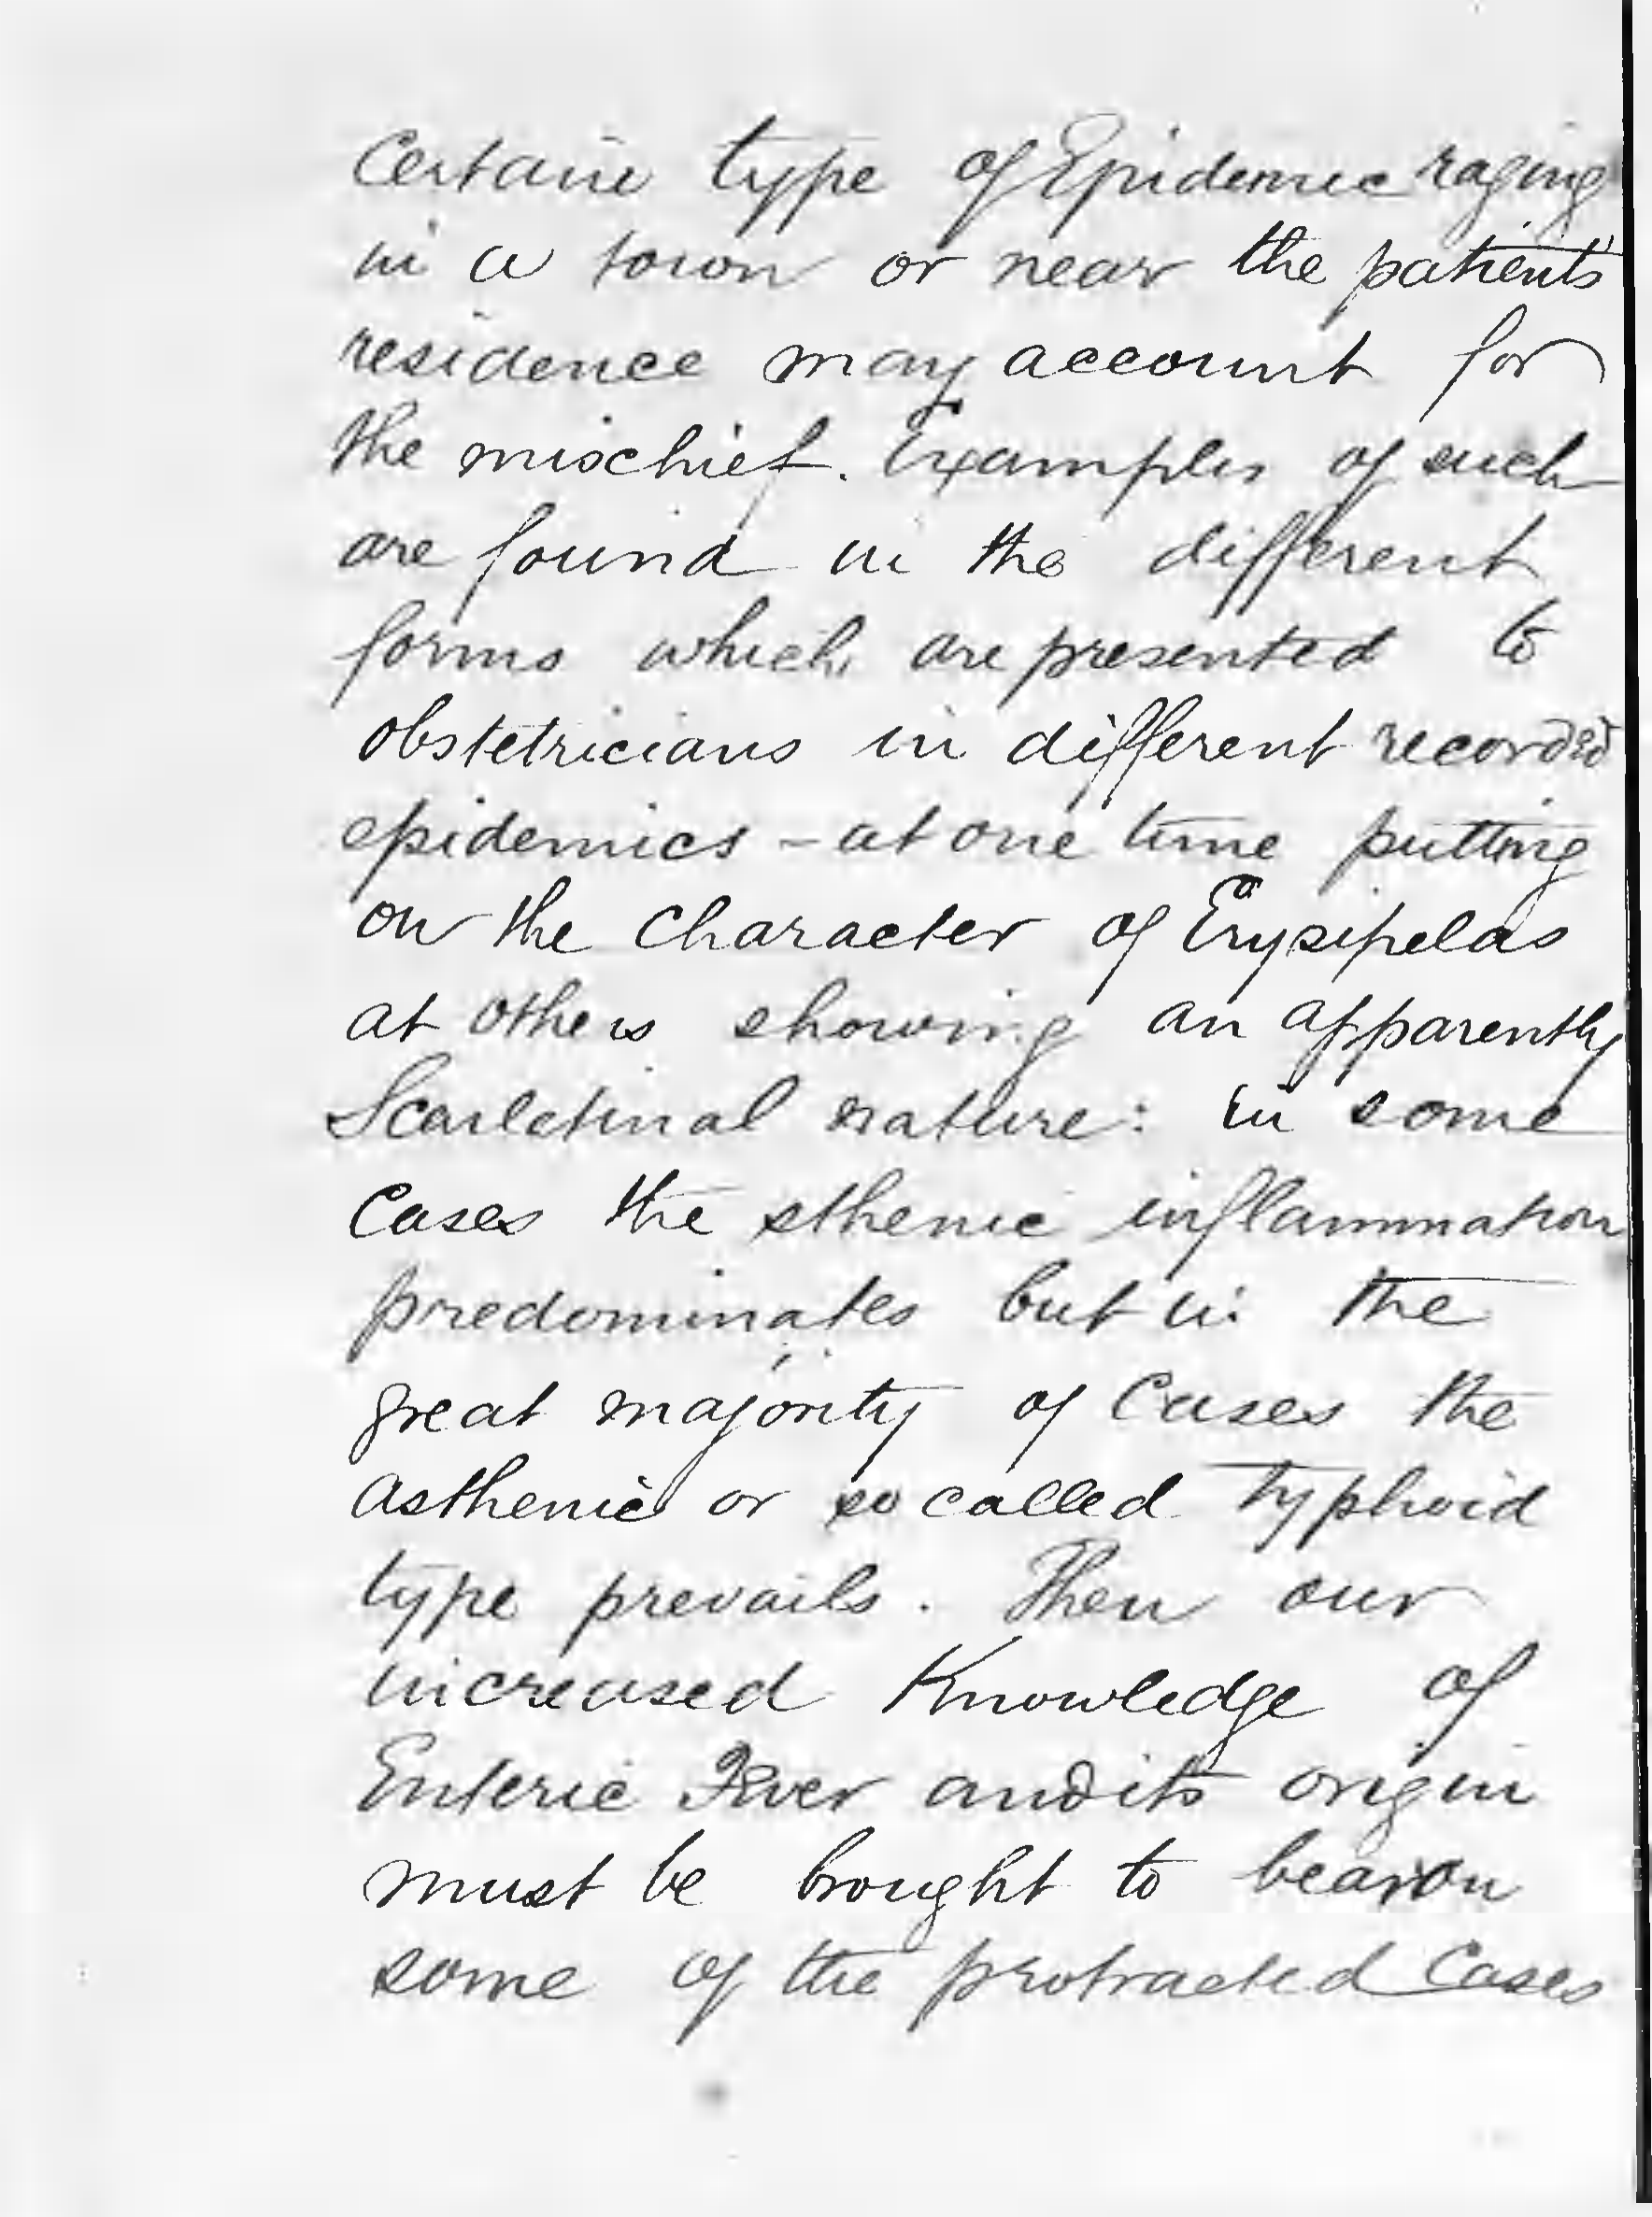 Certain type of Epidemic raging
in a town or near the patient's
residence may account for
the mischief. Examples of such
are found in the different
forms which are presented to
obstetricians in different recorded
epidemics - at one time putting
on the character of Erysipelas
at others showing an apparently
Scarletinal nature: in some
Cases the sthenic inflammation
predominates but in the
great majority of Cases the
Asthenic or so called Typhoid
type prevails. Then our
increased Knowledge of
Enteric Fever and its origin
must be brought to bear on
some of the protracted Cases